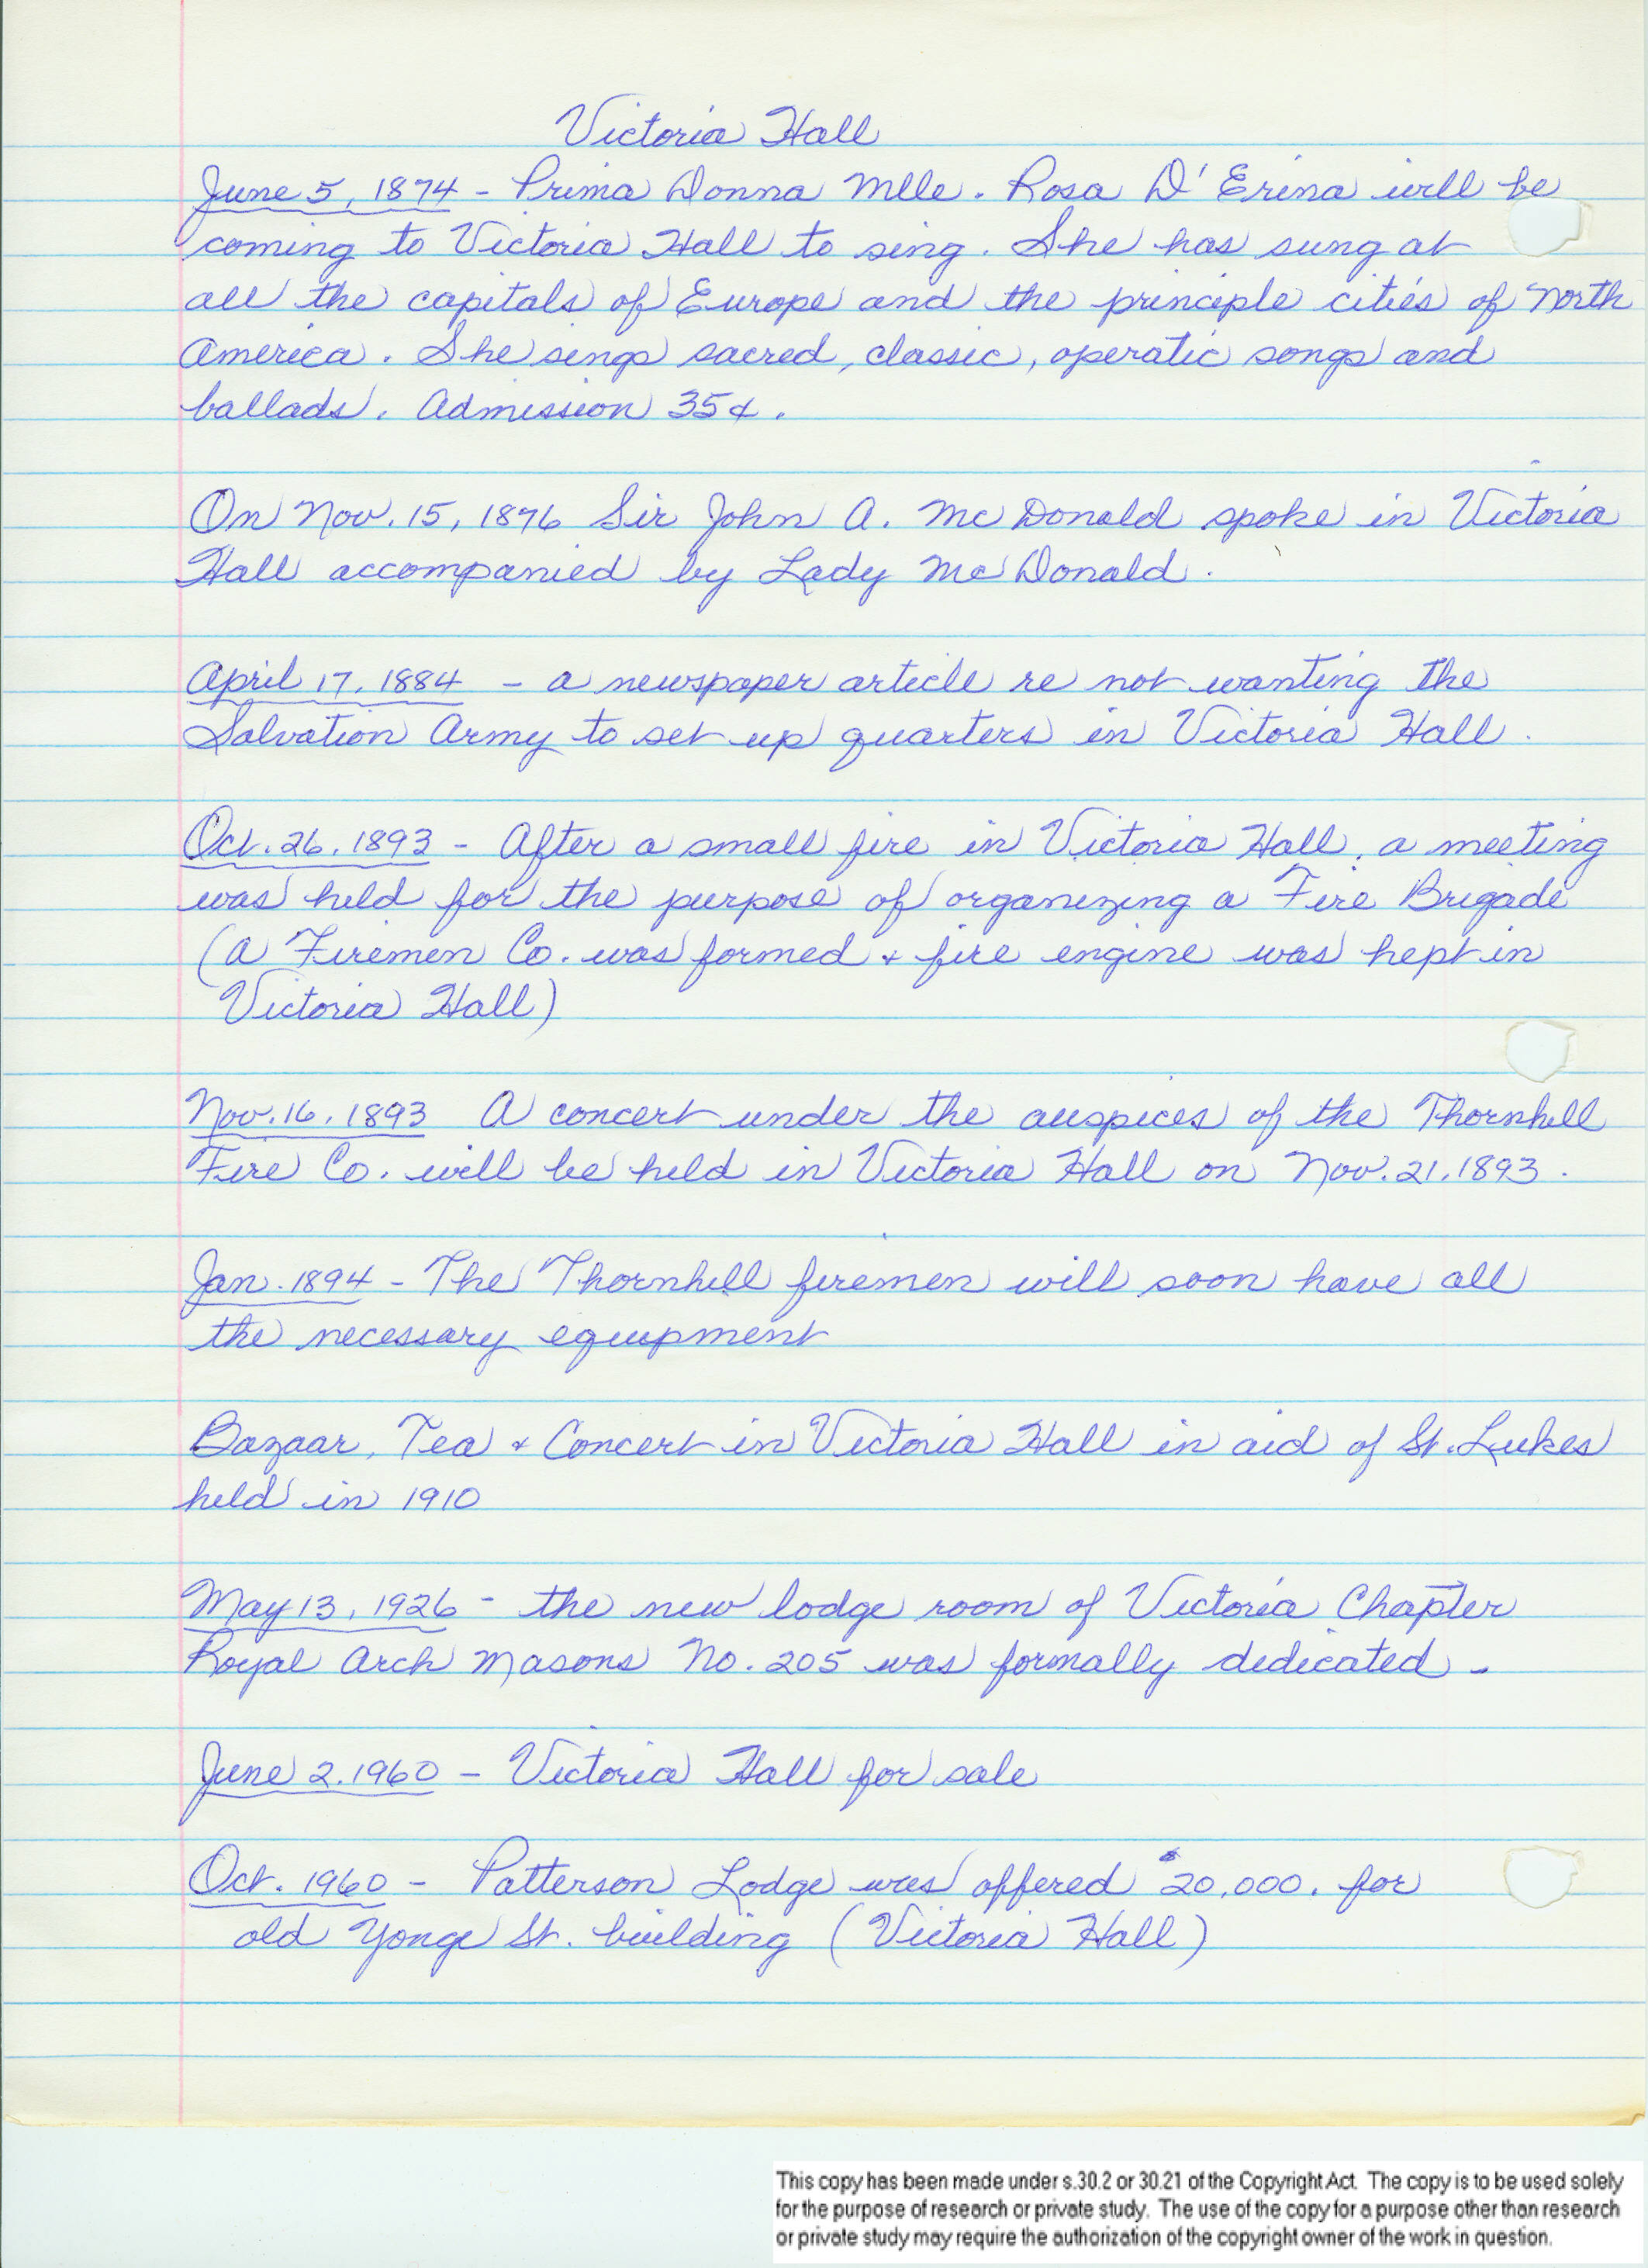 Victoria Hall
June 5, 1874 - Prima Donna Mlle. Rosa D'Erina will be
coming to Victoria Hall to sing. She has sung at
all the capitals of Europe and the principle cities of North
America. She sings sacred, classic, operatic songs and
ballads. Admission 35¢.
On Nov. 15, 1876 Sir John A. McDonald spoke in Victoria
Hall accompanied by Lady McDonald.
April 17, 1884 - a newspaper article re not wanting the
Salvation Army to set up quarters in Victoria Hall.
Oct. 26, 1893 - After a small fire in Victoria Hall, a meeting
was held for the purpose of organizing a Fire Brigade
(A Firemen Co. was formed & fire engine was kept in
Victoria Hall)
Nov. 16, 1893 A concert under the auspices of the Thornhill
Fire Co. will be held in Victoria Hall on Nov. 21, 1893.
Jan. 1894 - The Thornhill firemen will soon have all
the necessary equipment
Bazaar, Tea & Concert in Victoria Hall in aid of St. Lukes
held in 1910
May 13, 1926 - the new lodge room of Victoria Chapter
Royal Arch Masons No. 205 was formally dedicated.
June 2, 1960 - Victoria Hall for sale
Oct. 1960 - Patterson Lodge was offered $20,000. for
old Yonge St. building (Victoria Hall)
This copy has been made under s.30.2 or 30.21 of the Copyright Act. The copy is to be used solely
for the purpose of research or private study. The use of the copy for a purpose other than research
or private study may require the authorization of the copyright owner of the work in question.